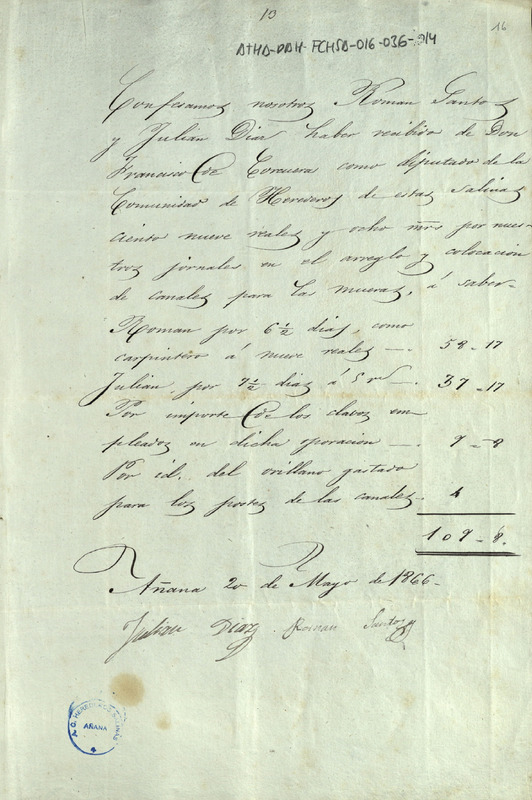 13
16
ATHA-DAH-FCHSA-016-036-014
Confesamos nosotros Roman Santos
y Julian Diaz haber recibido de Don
Francisco de Corcuera como diputado de la
Comunidad de Herederos de estas Salinas
ciento nueve reales y ocho mrs por nues-
tros jornales en el arreglo y colocación
de canales para las mueras, á saber-
Roman por 6 ½ dias, como
carpintero á nueve reales — 58-17
Julian por 7½ dias á 5 rs 37-17
Por importe de los clavos em-
pleados en dicha operacion — 9-8
Por id. del orillano gastado
para los postes de las canales. 4
109-8.
Añana 20 de Mayo de 1866-
Julian Diaz Roman Santos
HEREDEROS
AÑANA